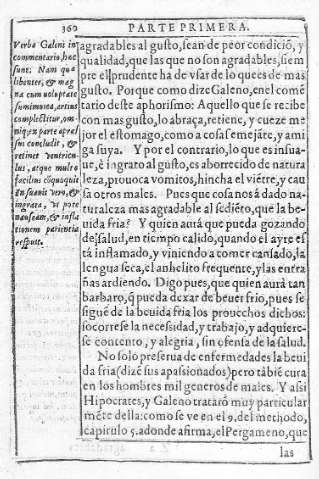 360
PARTE PRIMERA.
Verba Galeni in
commentario, hæc
sunt. Nam quæ
libenter, & mag
na cum voluptate
sumimus, arctius
complectitur, om
niq; ex parte apræf
sim concludit, &
retinet ventricu-
lus, atque multo
facilius cõquoquit
Insuauis vero, &
ingrata, vt pote
nauseam, & infla
tionem parientia
respuit.
agradables al gusto, sean de peor condiciõ, y
qualidad, que las que no son agradables, siem
pre el prudente ha de vsar de lo que es de mas
gusto. Porque como dize Galeno, en el comẽ
tario deste aphorismo: Aquello que se recibe
con mas gusto, lo abraça, retiene, y cueze me
jor el estomago, como a cosa semejãte, y ami
ga suya. Y por el contrario, lo que es insua-
ue, è ingrato al gusto, es aborrecido de natura
leza, prouoca vomitos, hincha el viẽtre, y cau
sa otros males. Pues que cosa nos à dado na-
turaleza mas agradable al sediẽto, que la be-
uida fria? Y quien aurà que pueda gozando
de salud, en tiempo calido, quando el ayre es
tà inflamado, y viniendo a comer cansado, la
lengua seca, el anhelito frequente, y las entra
ñas ardiendo. Digo pues, que quien aurà tan
barbaro, q̃ pueda dexar de beuer frio, pues se
siguẽ de la beuida fria los prouechos dichos:
socorrese la necessidad, y trabajo, y adquiere-
se contento, y alegria, sin ofensa de la salud.
No solo preserua de enfermedades la beui
da fria (dizẽ sus apasionados) pero tãbiẽ cura
en los hombres mil generos de males. Y assi
Hipocrates, y Galeno tratarõ muy particular
mẽte della: como se ve en el 9. del methodo,
capitulo 5. adonde afirma, el Pergameno, que
las